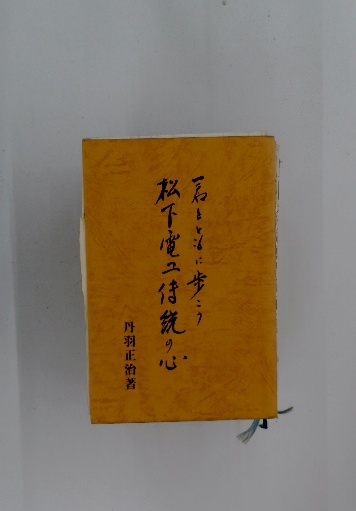 君とともに歩こう
松下電工傳統の心
丹羽正治著